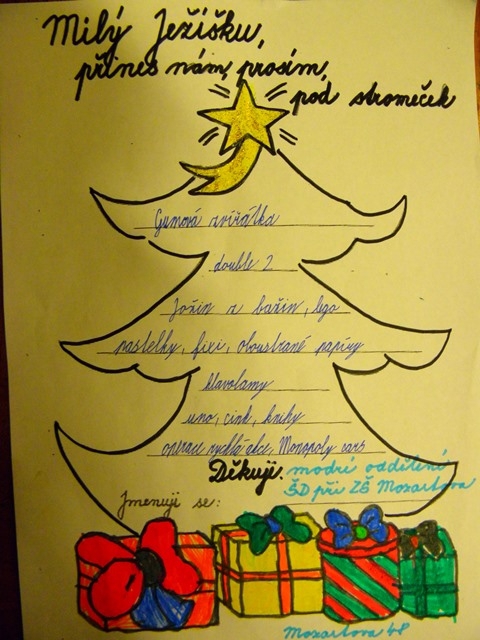 Milý Ježíšku,
přines nám, prosím,
pod stromeček
Gumová zvířátka
double 2
Jožin z bažin, lego
pastelky, fixi, oboustrané papíry
hlavolamy
uno, cink, knihy
operace rychlá akce, Monopoly cars
Děkuji.
modré oddělení
ŠD při ZŠ Mozartova
Jmenuji se:
Mozartova 48